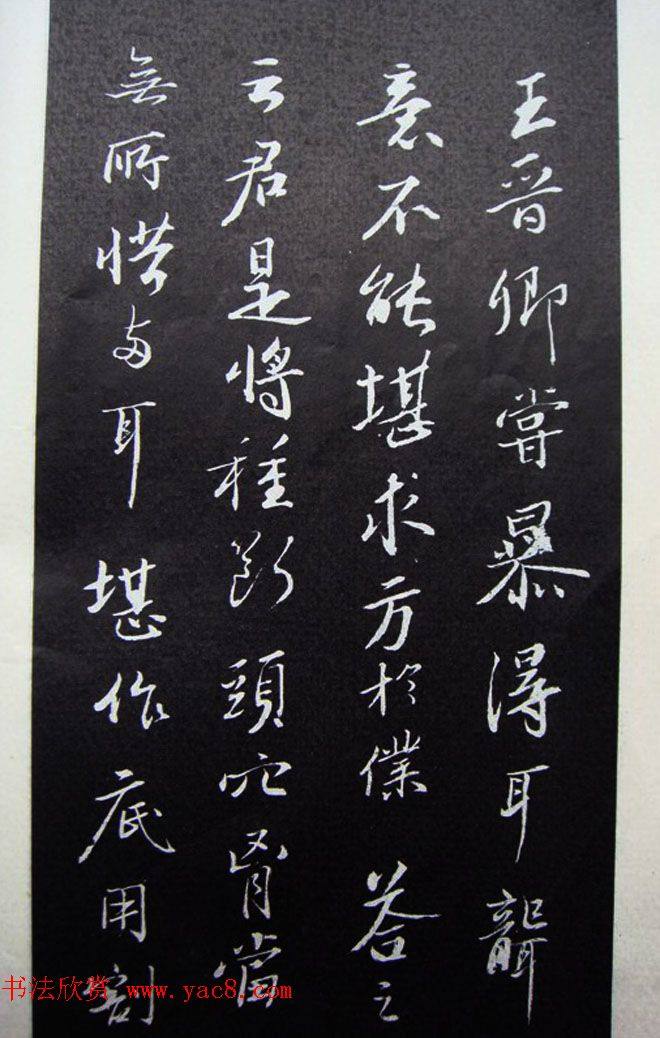 王晉卿嘗暴得耳聾
意不能堪求方於僕答之
云君是將種斷頭穴胷當
無所惜兩耳堪作底用割
书法欣赏 www.yac8.com